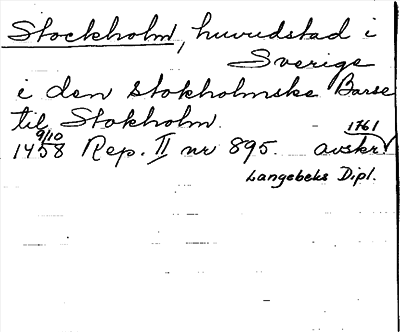 Stockholm, huvudstad i
Sverige
i den Stokholmske Barse
til Stokholm.
9/10 1761
1458 Rep. II nr 895. avskr
Langebeks Dipl.